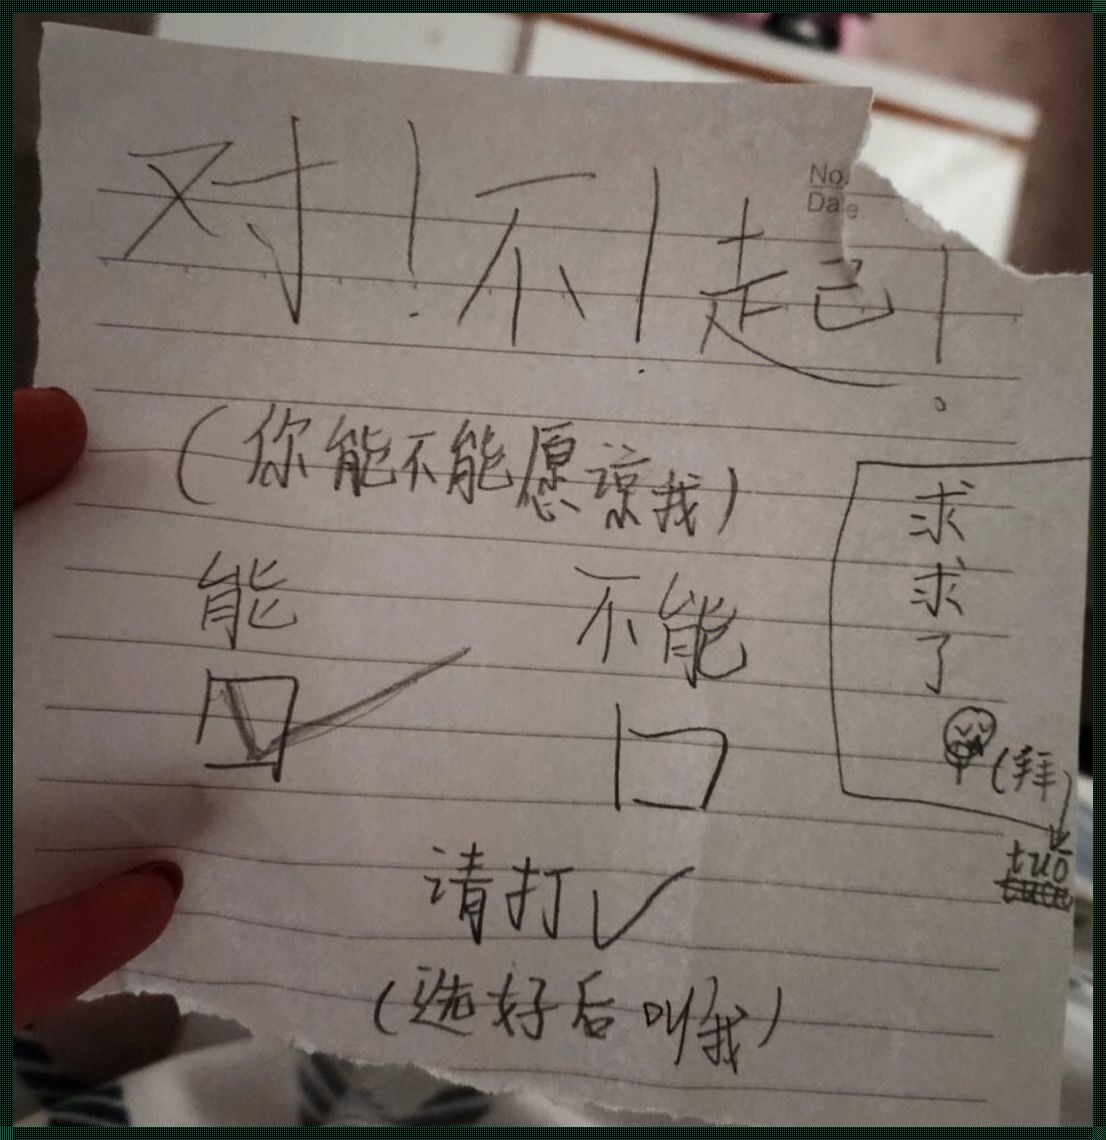 No.
Date
对！不！起！
（你能不能愿谅我）
能 不能
求
求
了
（拜）
tuō
请打✓
（选好后叫我）